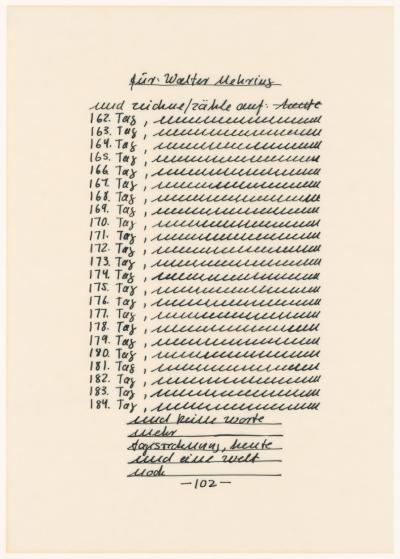 für: Walter Mehring
und zeichne/zähle auf: heute
162. Tag,
163. Tag,
164. Tag,
165. Tag,
166. Tag,
167. Tag,
168. Tag,
169. Tag,
170. Tag,
171. Tag,
172. Tag,
173. Tag,
174. Tag,
175. Tag,
176. Tag,
177. Tag,
178. Tag,
179. Tag,
180. Tag,
181. Tag,
182. Tag,
183. Tag,
184. Tag,
und keine Worte
mehr
Tagesordnung, heute
und eine Welt
noch
—102—